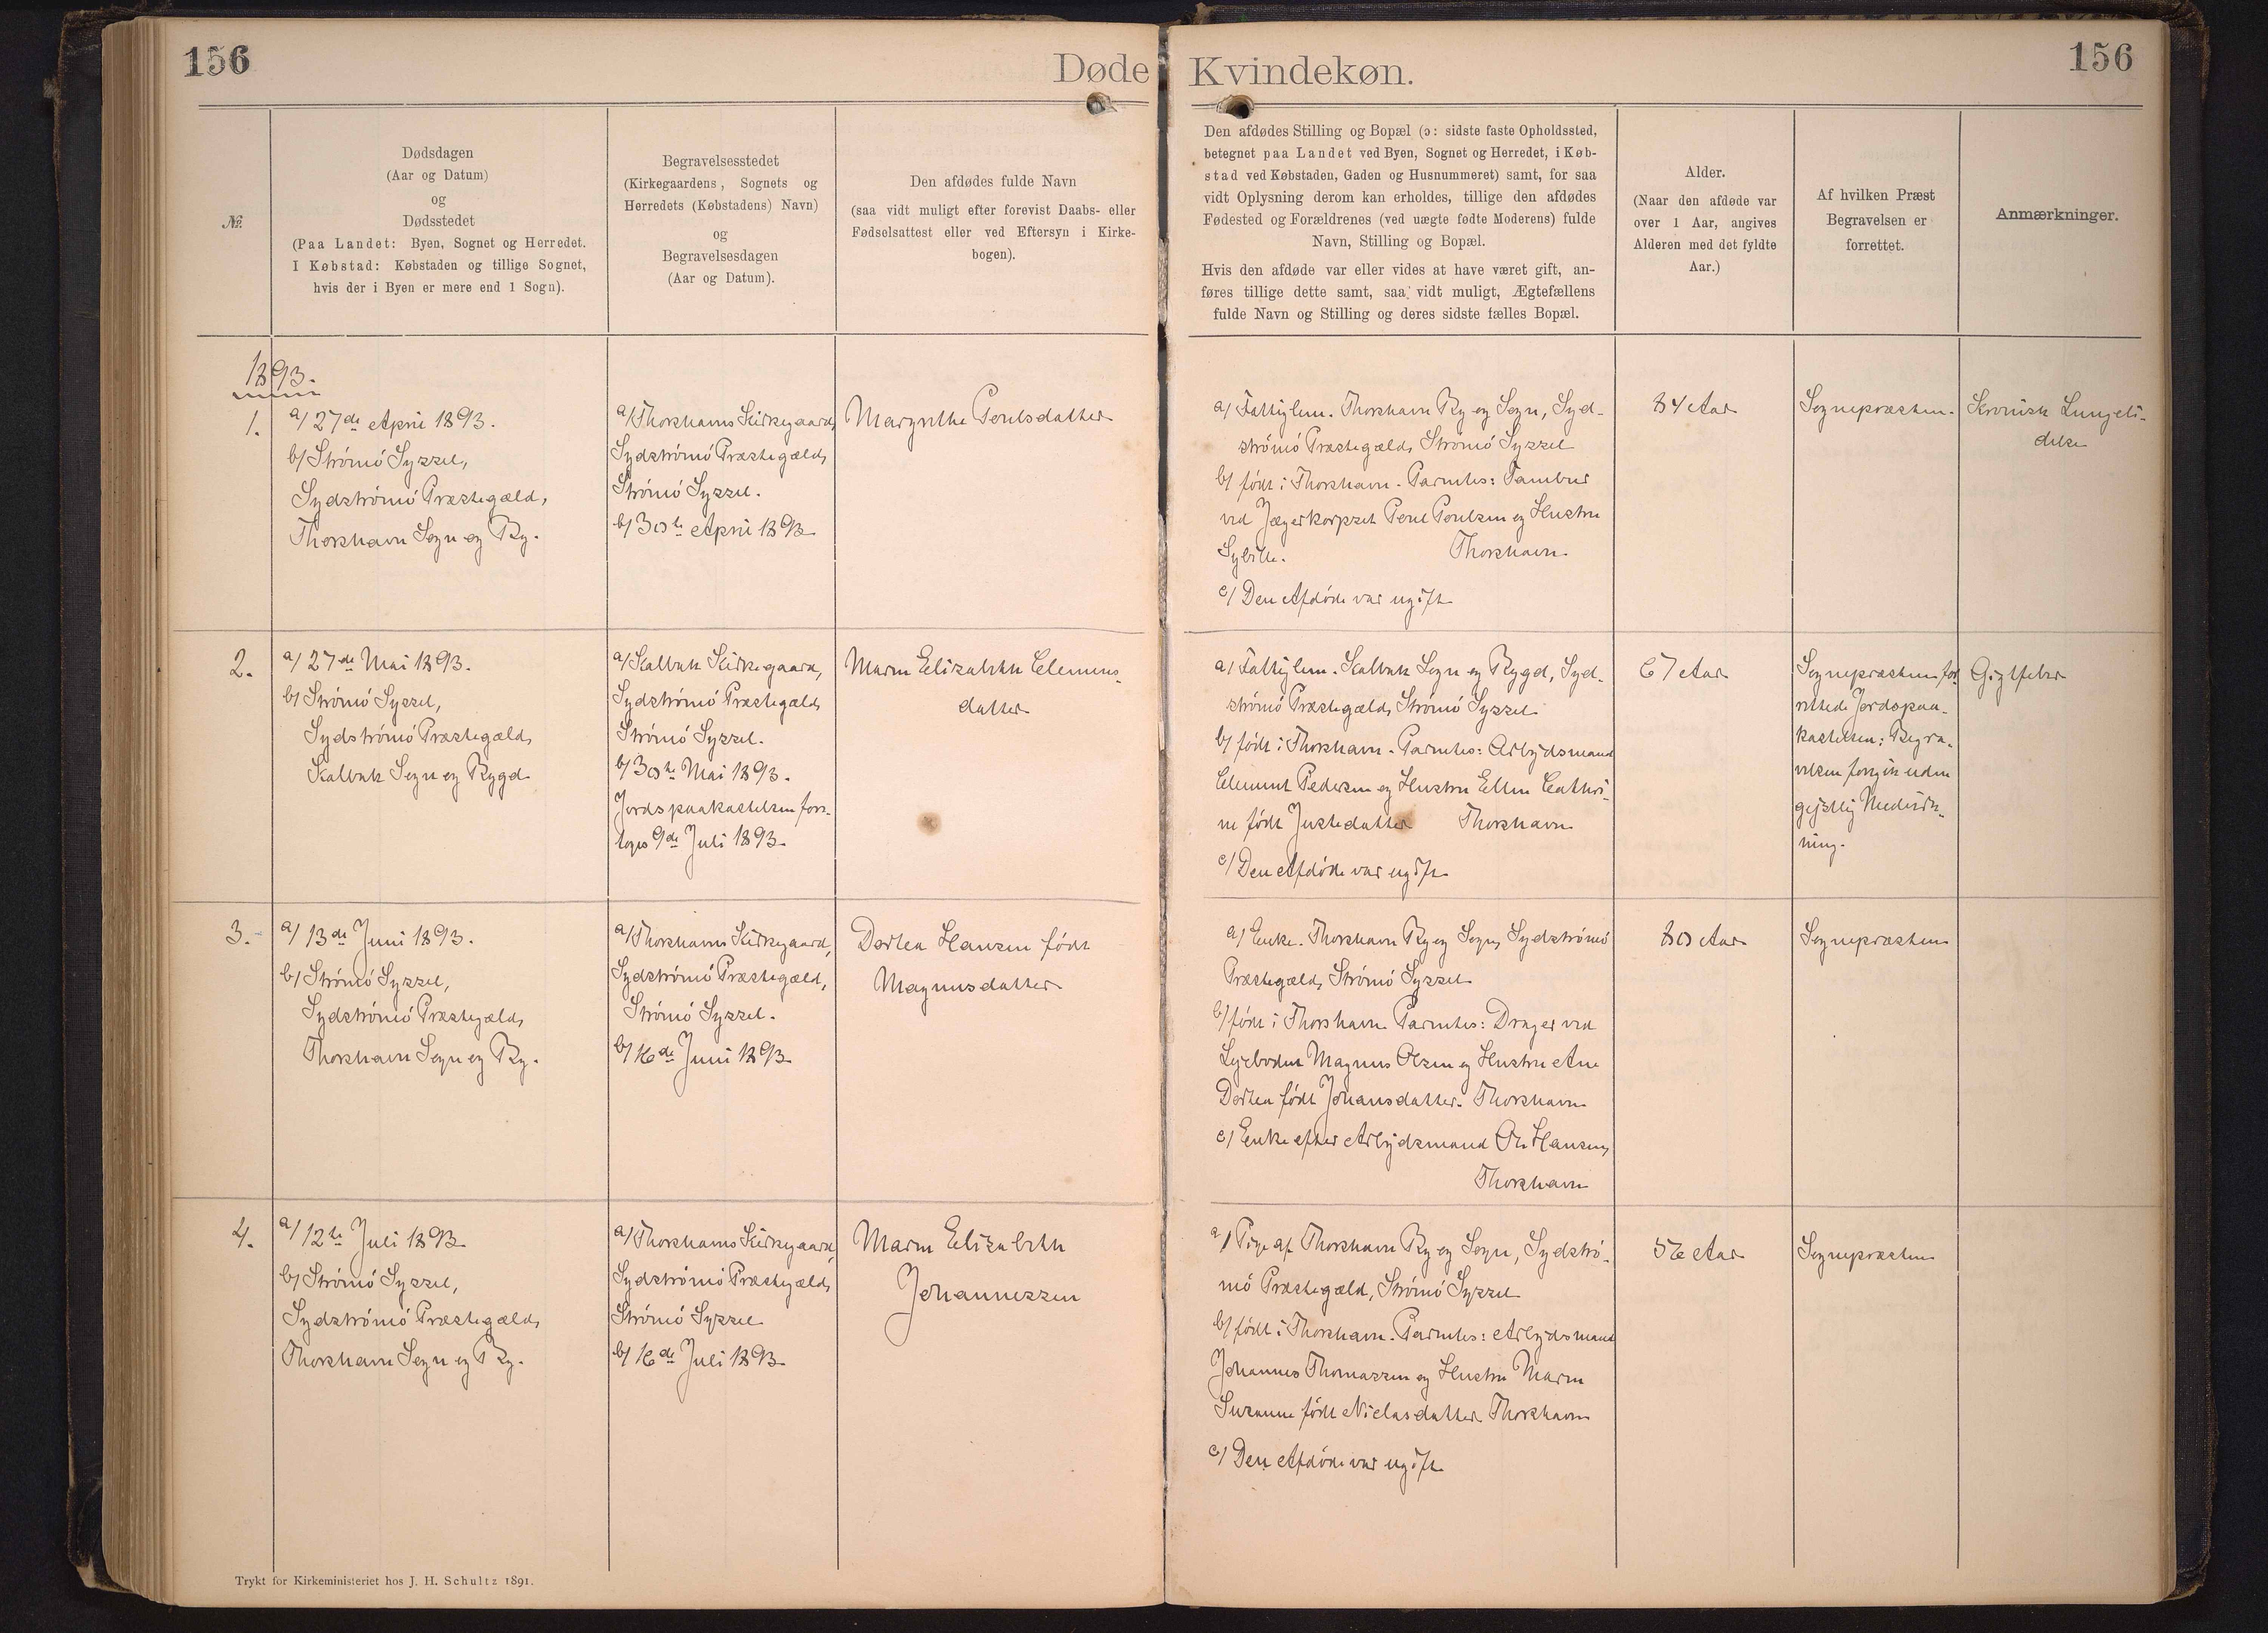 156
Døde Kvindekøn.
156
№
Dødsdagen
(Aar og Datum)
og
Dødsstedet
(Paa Landet: Byen, Sognet og Herredet.
I Købstad: Købstaden og tillige Sognet,
hvis der i Byen er mere end 1 Sogn).
Begravelsesstedet
(Kirkegaardens, Sognets og
Herredets (Købstadens) Navn)
og
Begravelsesdagen
(Aar og Datum).
Den afdødes fulde Navn
(saa vidt muligt efter forevist Daabs- eller
Fødselsattest eller ved Eftersyn i Kirke-
bogen).
Den afdødes Stilling og Bopæl (ɔ: sidste faste Opholdssted,
betegnet paa Landet ved Byen, Sognet og Herredet, i Køb-
stad ved Købstaden, Gaden og Husnummeret) samt, for saa
vidt Oplysning derom kan erholdes, tillige den afdødes
Fødested og Forældrenes (ved uægte fødte Moderens) fulde
Navn, Stilling og Bopæl.
Hvis den afdøde var eller vides at have været gift, an-
føres tillige dette samt, saa vidt muligt, Ægtefællens
fulde Navn og Stilling og deres sidste fælles Bopæl.
Alder.
(Naar den afdøde var
over 1 Aar, angives
Alderen med det fyldte
Aar.)
Af hvilken Præst
Begravelsen er
forrettet.
Anmærkninger.
1893.
1.
a/ 27de April 1893.
b/ Strömö Syssel,
Sydströmö Præstegæld,
Thorshavn Sogn og By.
a/ Thorshavns Kirkegaard,
Sydströmö Præstegæld,
Strömö Syssel.
b/ 30te April 1893.
Marynthe Poulsdatter
a/ Fattiglem. Thorshavn By og Sogn, Syd-
strömö Præstegæld, Strömö Syssel
b/ født i Thorshavn. Parentes: Tambur
ved Jægerkorpset Poul Poulsen og Hustru
Sybille. Thorshavn.
c/ Den Afdøde var ugift.
84 Aar
Sognepræsten.
Kronisk Lungeli-
delse
2.
a/ 27de Mai 1893.
b/ Strömö Syssel,
Sydströmö Præstegæld,
Kalbak Sogn og Bygd.
a/ Kalbak Kirkegaard,
Sydströmö Præstegæld,
Strömö Syssel.
b/ 30te Mai 1893.
Jordspaakastelsen fore-
toges 9de Juli 1893.
Maren Elisabeth Clemens-
datter
a/ Fattiglem. Kalbak Sogn og Bygd, Syd-
strömö Præstegæld, Strömö Syssel
b/ født i Thorshavn. Parentes: Arbejdsmand
Clement Pedersen og Hustru Ellen Cathri-
ne født Justedatter Thorshavn
c/ Den Afdøde var ugift.
67 Aar
Sognepræsten for-
rettede Jordspaa-
kastelsen; Begra-
velsen foregik uden
gejstlig Medvirk-
ning.
Gigtfeber
3.
a/ 13de Juni 1893.
b/ Strömö Syssel,
Sydströmö Præstegæld,
Thorshavn Sogn og By.
a/ Thorshavns Kirkegaard,
Sydströmö Præstegæld,
Strömö Syssel.
b/ 16de Juni 1893.
Dorthea Hansen født
Magnusdatter
a/ Enke. Thorshavn By og Sogn, Sydströmö
Præstegæld, Strömö Syssel
b/ født i Thorshavn. Parentes: Drager ved
Magnus Olsen og Hustru Ane
Dorthea født Johansdatter. Thorshavn
c/ Enke efter Arbejdsmand Ole Hansen,
Thorshavn
80 Aar
Sognepræsten
4.
a/ 12te Juli 1893
b/ Strömö Syssel,
Sydströmö Præstegæld,
Thorshavn Sogn og By.
a/ Thorshavns Kirkegaard,
Sydströmö Præstegæld,
Strömö Syssel
b/ 16de Juli 1893.
Maren Elisabeth
Johannessen
a/ Pige af Thorshavn By og Sogn, Sydströ-
mö Præstegæld, Strömö Syssel
b/ født i Thorshavn. Parentes: Arbejdsmand
Johannes Thomassen og Hustru Maren
Susanne født Nielasdatter Thorshavn
c/ Den Afdøde var ugift.
56 Aar
Sognepræsten
Trykt for Kirkeministeriet hos J. H. Schultz 1891.